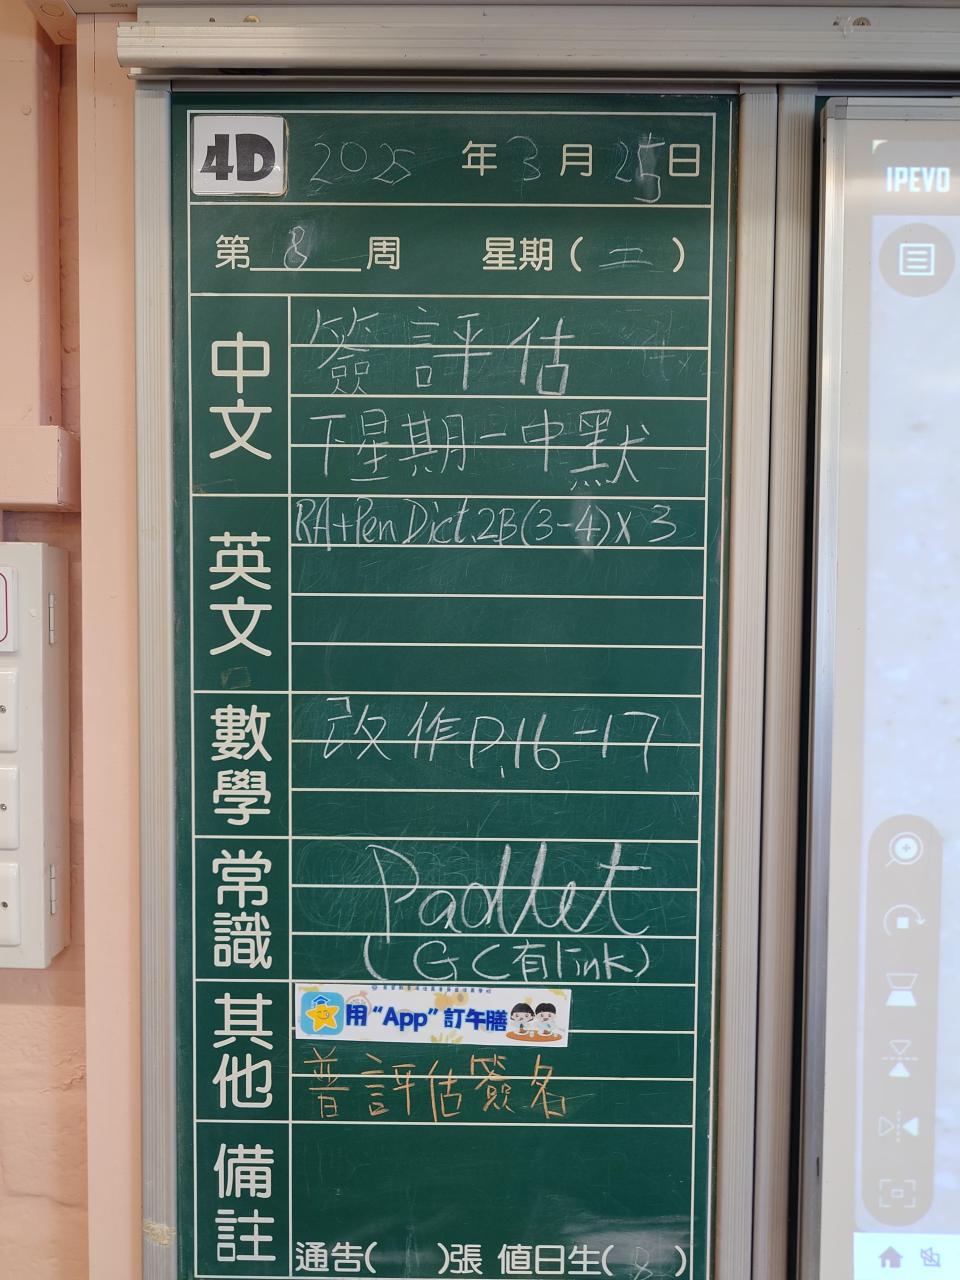 4D 2025 年 3 月 25 日
第 8 周 星期 ( 二 )
中文
簽評估
下星期一中默
英文
RA+Pen Dict. 2B(3-4) x 3
數學
改作P.16-17
常識
Padlet
(GC有link)
其他
用 “App” 訂午膳
普評估簽名
備註
通告( )張 值日生( 8 )
IPEVO